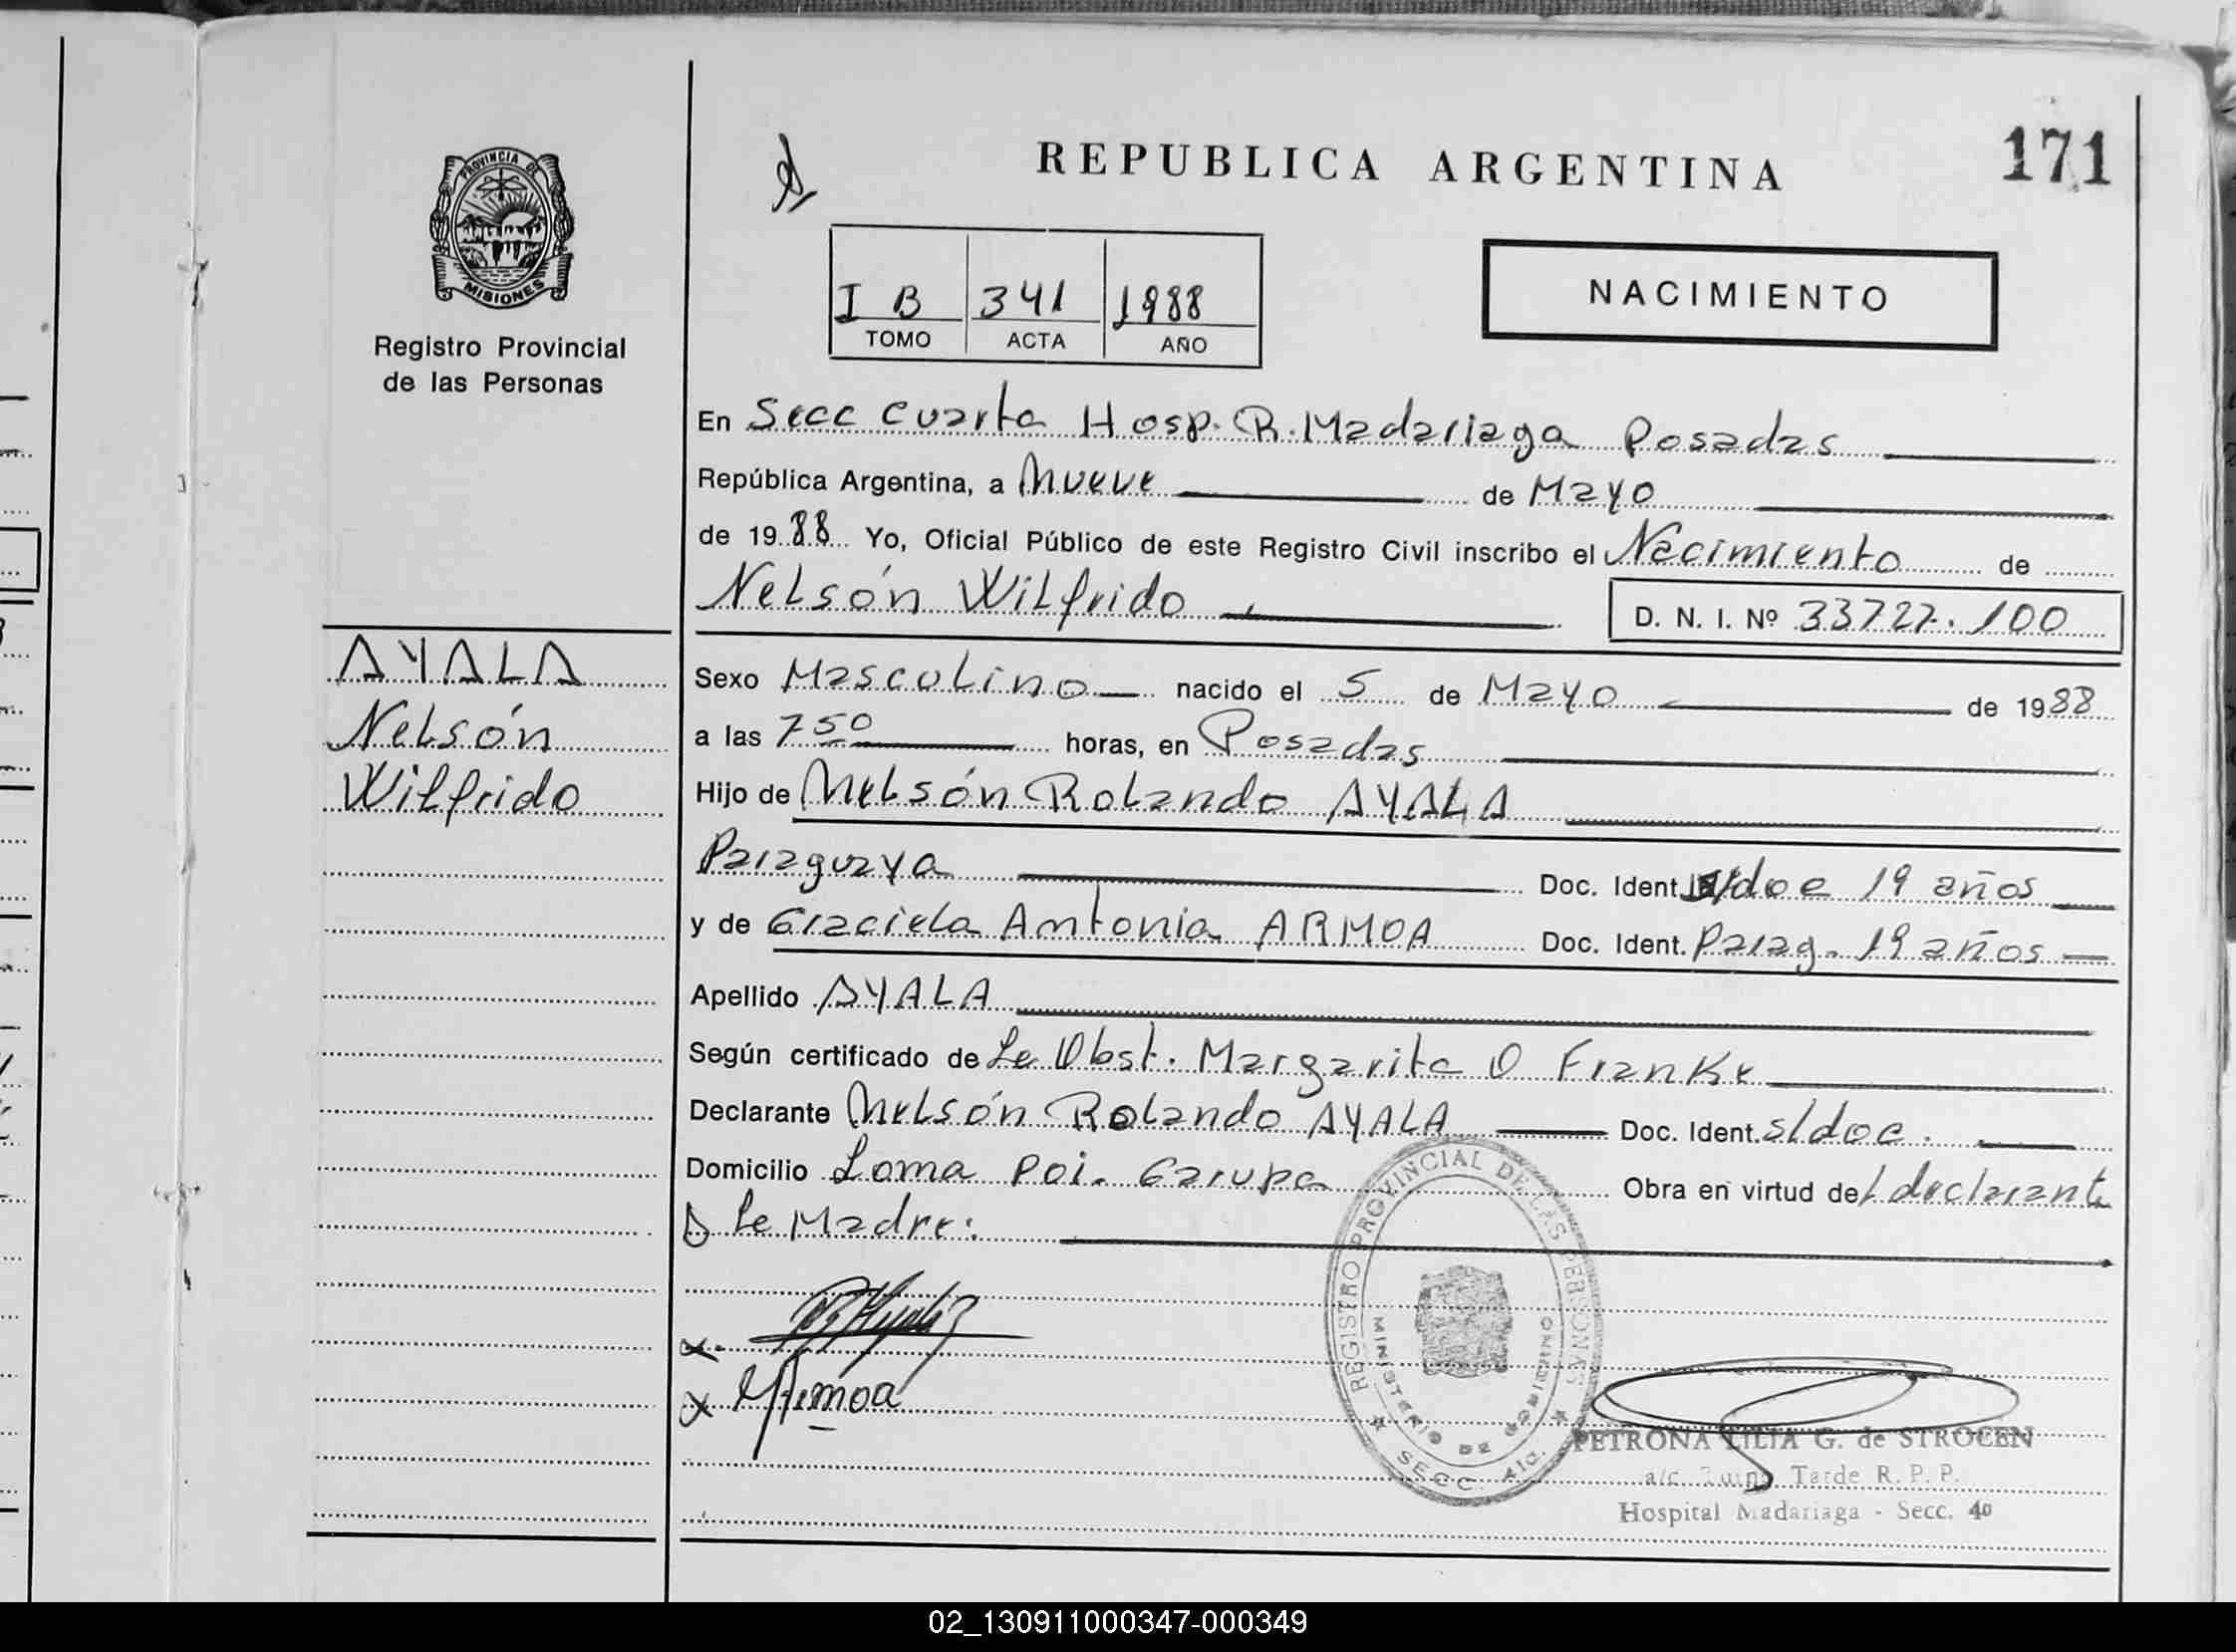 REPUBLICA ARGENTINA
171
PROVINCIA DE
MISIONES
Registro Provincial
de las Personas
I B 341 1988
TOMO ACTA AÑO
NACIMIENTO
En Secc Cuarta Hosp. R. Madariaga Posadas
República Argentina, a Nueve de Mayo
de 1988 Yo, Oficial Público de este Registro Civil inscribo el Nacimiento de
Nelsón Wilfrido D. N. I. Nº 33727.100
AYALA
Nelsón
Wilfrido
Sexo Masculino nacido el 5 de Mayo de 1988
a las 7 50 horas, en Posadas
Hijo de Nelsón Rolando AYALA
Paraguaya Doc. Ident. s/doc 19 años
y de Graciela Antonia ARMOA Doc. Ident. Parag. 19 años
Apellido AYALA
Según certificado de La Obst. Margarita O Franke
Declarante Nelsón Rolando AYALA Doc. Ident. s/doc.
Domicilio Loma Poi. Garupa Obra en virtud del declarante
D La Madre:
REGISTRO PROVINCIAL DE LAS PERSONAS
MINISTERIO DE GOBIERNO
SECC. 4ta.
x.
x Armoa
PETRONA LILIA G. de STROCEN
a/c. Turno Tarde R. P. P.
Hospital Madariaga - Secc. 4a
02_130911000347-000349